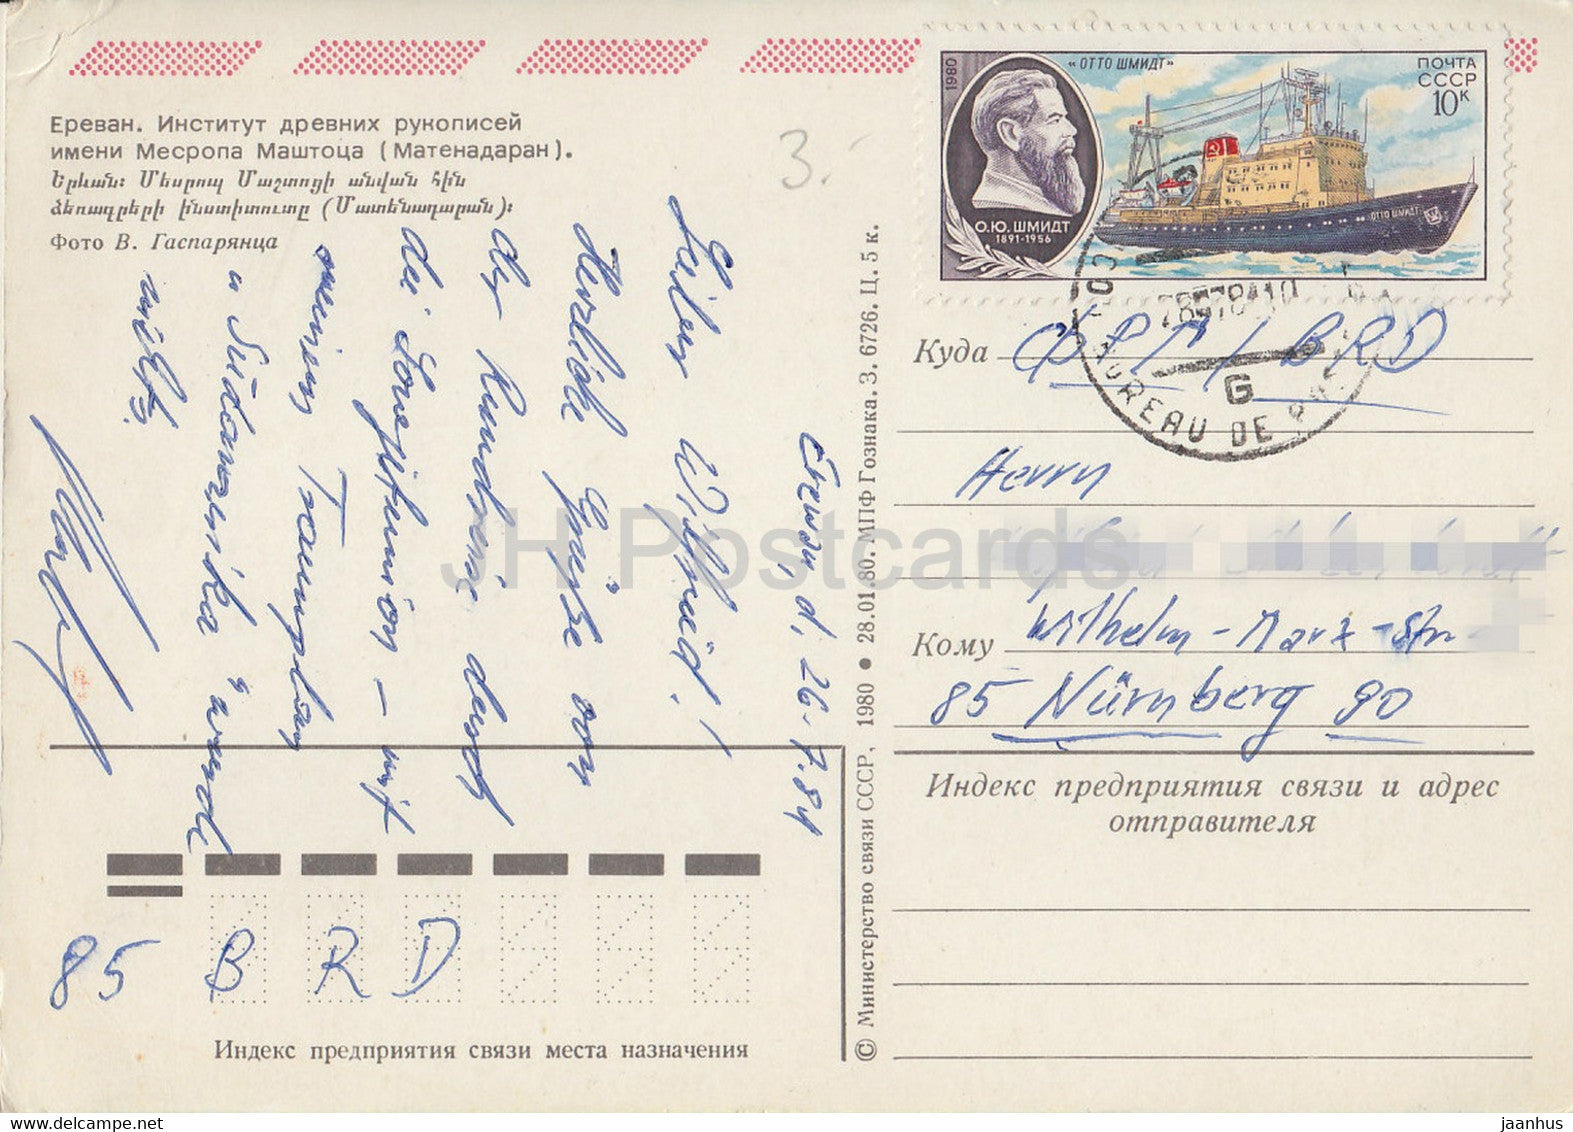 Ереван. Институт древних рукописей
имени Месропа Маштоца (Матенадаран).
Երևան։ Մեսրոպ Մաշտոցի անվան հին
ձեռագրերի ինստիտուտը (Մատենադարան)։
Фото В. Гаспарянца
3.-
1980
«ОТТО ШМИДТ»
ПОЧТА
СССР
10к
О.Ю. ШМИДТ
1891-1956
ОТТО ШМИДТ
G
BUREAU DE
d. 26.7.84
Lieber Wilfried!
Herzliche Grüße von
der Rundreise durch
die Sowjetunion – mit
meiner
u
JH Postcards
Куда
ФРГ / BRD
Herrn
Кому
Wilhelm-Marx-Str.
85 Nürnberg 90
Индекс предприятия связи и адрес
отправителя
85 BRD
Индекс предприятия связи места назначения
© Министерство связи СССР, 1980 ● 28.01.80. МПФ Гознака. З. 6726. Ц. 5 к.
jaanhus